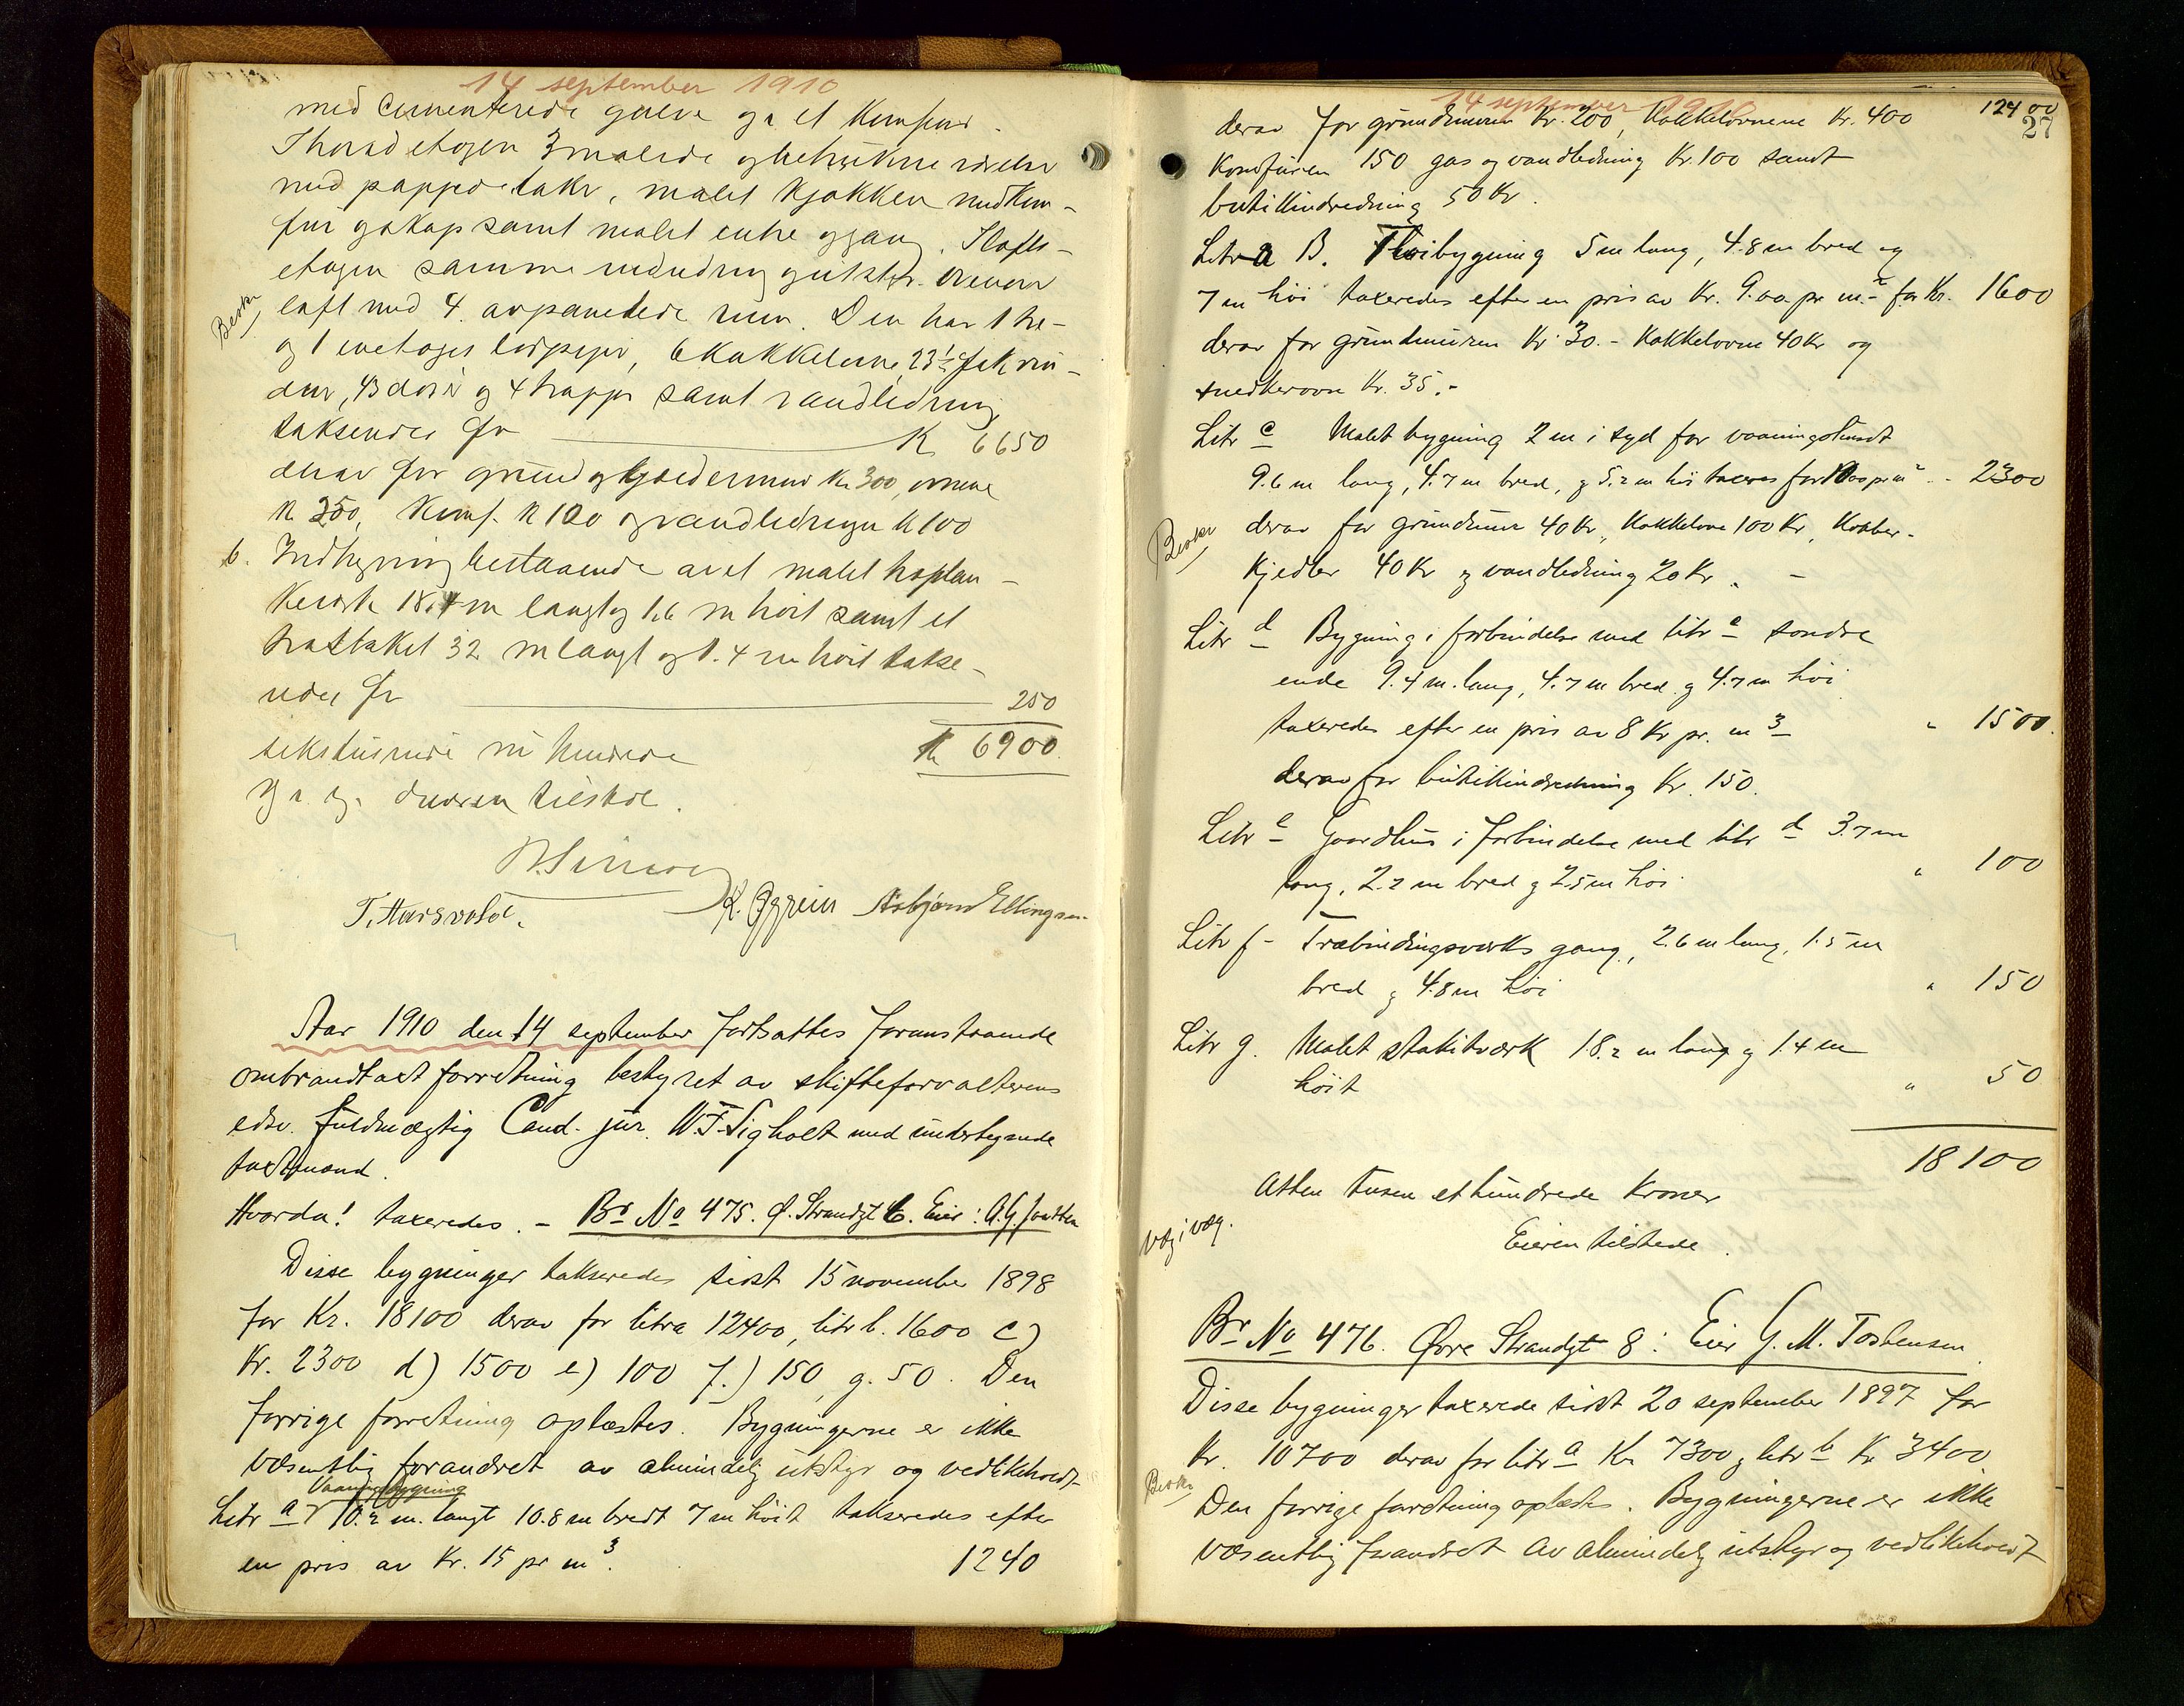 14 september 1910
med cementerede gulve og et Komfur.
I hovedetagen 3 malede og betrukne værelser
med pappede take, malet Kjøkken med Kom-
fur og skap samt malet entre og gang. I lofts-
etagen samme indredning og utstyr. Ovenover
loft med 4 avpanelede rum. Den har 1 to-
Besikt
og 1 enetages 6 Kakkelovne, 23½ fak vin-
duer, 43 dører og 4 trapper samt vandledning
takseredes for K 6650
derav for grund og Kjeldermur Kr 300, ovnene
K 350, Komf. K 100 og vandledningen K 100
b. Indhegning bestaaende av et malet træplan-
Keverk 18.4 m langt og 1.6 m høit samt et
træstaket 32 m langt og 1.4 m høit takse-
redes for 250
sekstusinde ni hundrede K 6900.
tilstede.
T. Aarsvold. K. Øgreid Asbjørn Ellingsen.
Aar 1910 den 14 september fortsattes foranstaaende
ombrandtaxt forretning bestyret av skifteforvalterens
edsv. fuldmægtig Cand. jur. W. F. Sigholt med undertegnede
taxtmænd.
Hvorda! taxeredes. – Br No 475. Ø. Strandgt 6. Eier: A. G.
Disse bygninger takseredes sidst 15 november 1898
for Kr. 18100 derav for litra 12400, litr b. 1600 c)
Kr. 2300 d) 1500 e) 100 f.) 150, g. 50. Den
forrige forretning oplæstes. Bygningerne er ikke
væsentlig forandret av almindelig utstyr og vedlikeholdt
Vaaningsbygning
Litr a 10.2 m. langt 10.8 m bredt 7 m høit takseredes efter
en pris av Kr. 15 pr m³. 1240
14 september 1910
27
derav for grundmuren Kr. 200, Kakkelovnene Kr. 400 12400
Komfuren 150 gas og vandledning Kr. 100 samt
butikkindredning 50 Kr.
Litr a B. Tilbygning 5 m lang, 4.8 m bred og
7 m høi taxeredes efter en pris av Kr. 9.00 pr m.² for Kr. 1600
derav for grundmuren Kr. 30.- Kakkelovne 40 Kr og
snedkerovn Kr. 35.-
Litr c Malet bygning 2 m i syd for vaaningshuset
9.6 m lang, 4.7 m bred, og 5.2 m høi taxeres for pr m² - 2300
derav for grundmur 40 Kr, Kakkelovne 100 Kr, Kobber-
Besikt
Kjedler 40 Kr og vandledning 20 Kr. –
Litr d Bygning i forbindelse med litr c søndre
ende 9.4 m. lang, 4.7 m bred og 4.7 m høi
taxeredes efter en pris av 8 Kr pr. m³ " 1500.
derav for butikkindredning Kr. 150.
Litr e Gaardhus i forbindelse med litr d 3.7 m
lang, 2.2 m bred og 2.5 m høi " 100
Litr f - Træbindingsværks gang, 2.6 m lang, 1.5 m
bred og 4.8 m høi " 150
Litr g. Malet stakitværk 18.2 m lang og 1.4 m
høit " 50
18100
Atten tusen et hundrede Kroner
væg i væg.
Eieren tilstede.
Br No 476. Øvre Strandgt 8: Eier G. M. Torbensen
Disse bygninger taxerede sidst 20 september 1897 for
Kr. 10700 derav for litr a Kr 7300 og litr b Kr 3400
Besikt
Den forrige forretning oplæstes. Bygningerne er ikke
væsentlig forandret av almindelig utstyr og vedlikeholdt